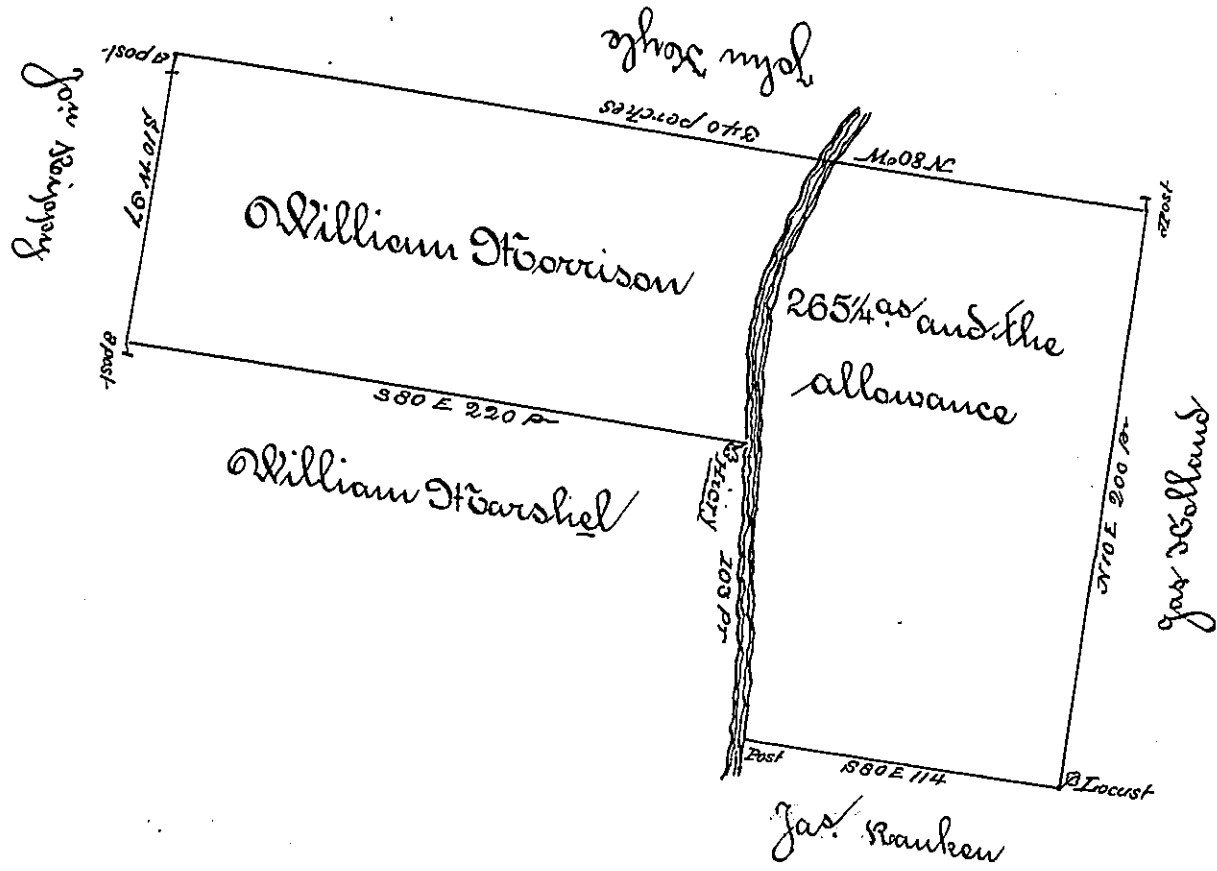 John Hoyle
A post
340 perches
N 80° W
Post
S 10 W 97
William Morrison
265 1/4 as and the
allowance
B post
S 80 E 220 pr
William Marshel
B Hicry
103 pr
N 10 E 200 pr
Jas Holland
Post
S 80 E 114
B Locust
Jas. Ranken